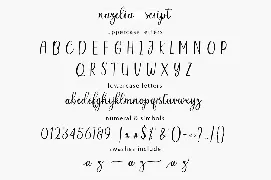 nazelia script
uppercase letters
ABCDEFGHIJKLMNOP
QRSTUVWXYZ
lowercase letters
abcdefghijklmnopqrstuvwxyz
numeral & symbols
swashes include